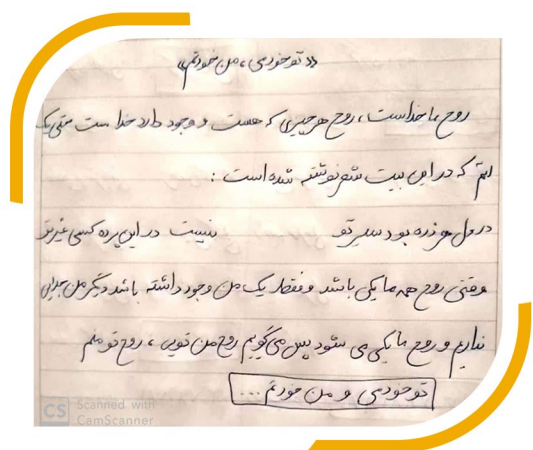 «تو خودمی، من خودتم»
روح ما خداست، روح هر چیزی که هست و وجود دارد خداست حتی یک
اتم که در این بیت شعر نوشته شده است :
در دل هر ذره بود سیر تو نیست در این پرده کسی غیر تو
وقتی روح همه ما یکی باشد و فقط یک من وجود داشته باشد دیگر من جدایی
نداریم و روح ما یکی می شود پس می‌گویم روح من تویی، روح تو منم
تو خودمی و من خودتم...
CS Scanned with
CamScanner